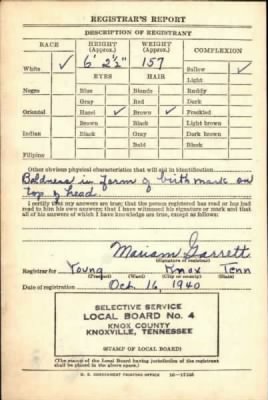 REGISTRAR'S REPORT
DESCRIPTION OF REGISTRANT
RACE HEIGHT (Approx.) WEIGHT (Approx.) COMPLEXION
White ✓ 6' 2½" 157 Sallow ✓
EYES HAIR Light
Negro Blue Blonde Ruddy
Gray Red Dark
Oriental Hazel ✓ Brown ✓ Freckled
Brown Black Light brown
Indian Black Gray Dark brown
Bald Black
Filipino
Other obvious physical characteristics that will aid in identification
Baldness in form of birth mark on
top of head.
I certify that my answers are true; that the person registered has read or has had
read to him his own answers; that I have witnessed his signature or mark and that
all of his answers of which I have knowledge are true, except as follows:
Mariam Garrett
(Signature of registrar)
Registrar for Young Knox Tenn
(Precinct) (Ward) (City or county) (State)
Date of registration Oct. 16, 1940
SELECTIVE SERVICE
LOCAL BOARD No. 4
KNOX COUNTY
KNOXVILLE, TENNESSEE
(STAMP OF LOCAL BOARD)
(The stamp of the Local Board having jurisdiction of the registrant
shall be placed in the above space.)
U. S. GOVERNMENT PRINTING OFFICE